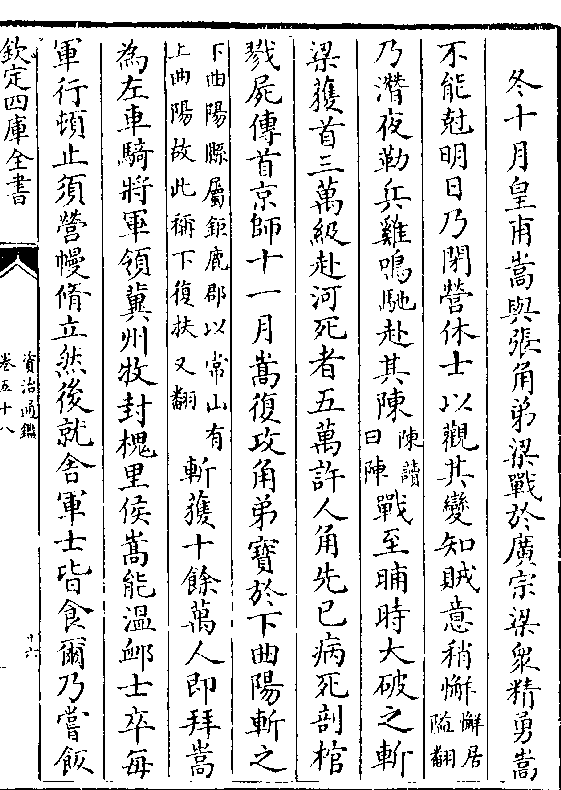 冬十月皇甫嵩與張角弟梁戰於廣宗梁衆精勇嵩
不能尅明日乃閉營休士以觀其變知賊意稍懈懈居隘翻
乃濳夜勒兵雞鳴馳赴其陳陳讀曰陣戰至晡時大破之斬
梁獲首三萬級赴河死者五萬許人角先已病死剖棺
戮屍傳首京師十一月嵩復攻角弟寶於下曲陽斬之
下曲陽縣屬鉅鹿郡以常山有上曲陽故此稱下復扶又翻斬獲十餘萬人即拜嵩
為左車騎將軍領冀州牧封槐里侯嵩能温䘏士卒每
軍行頓止須營幔脩立然後就舍軍士皆食爾乃嘗飯
欽定四庫全書
資治通鑑
卷五十八
十六